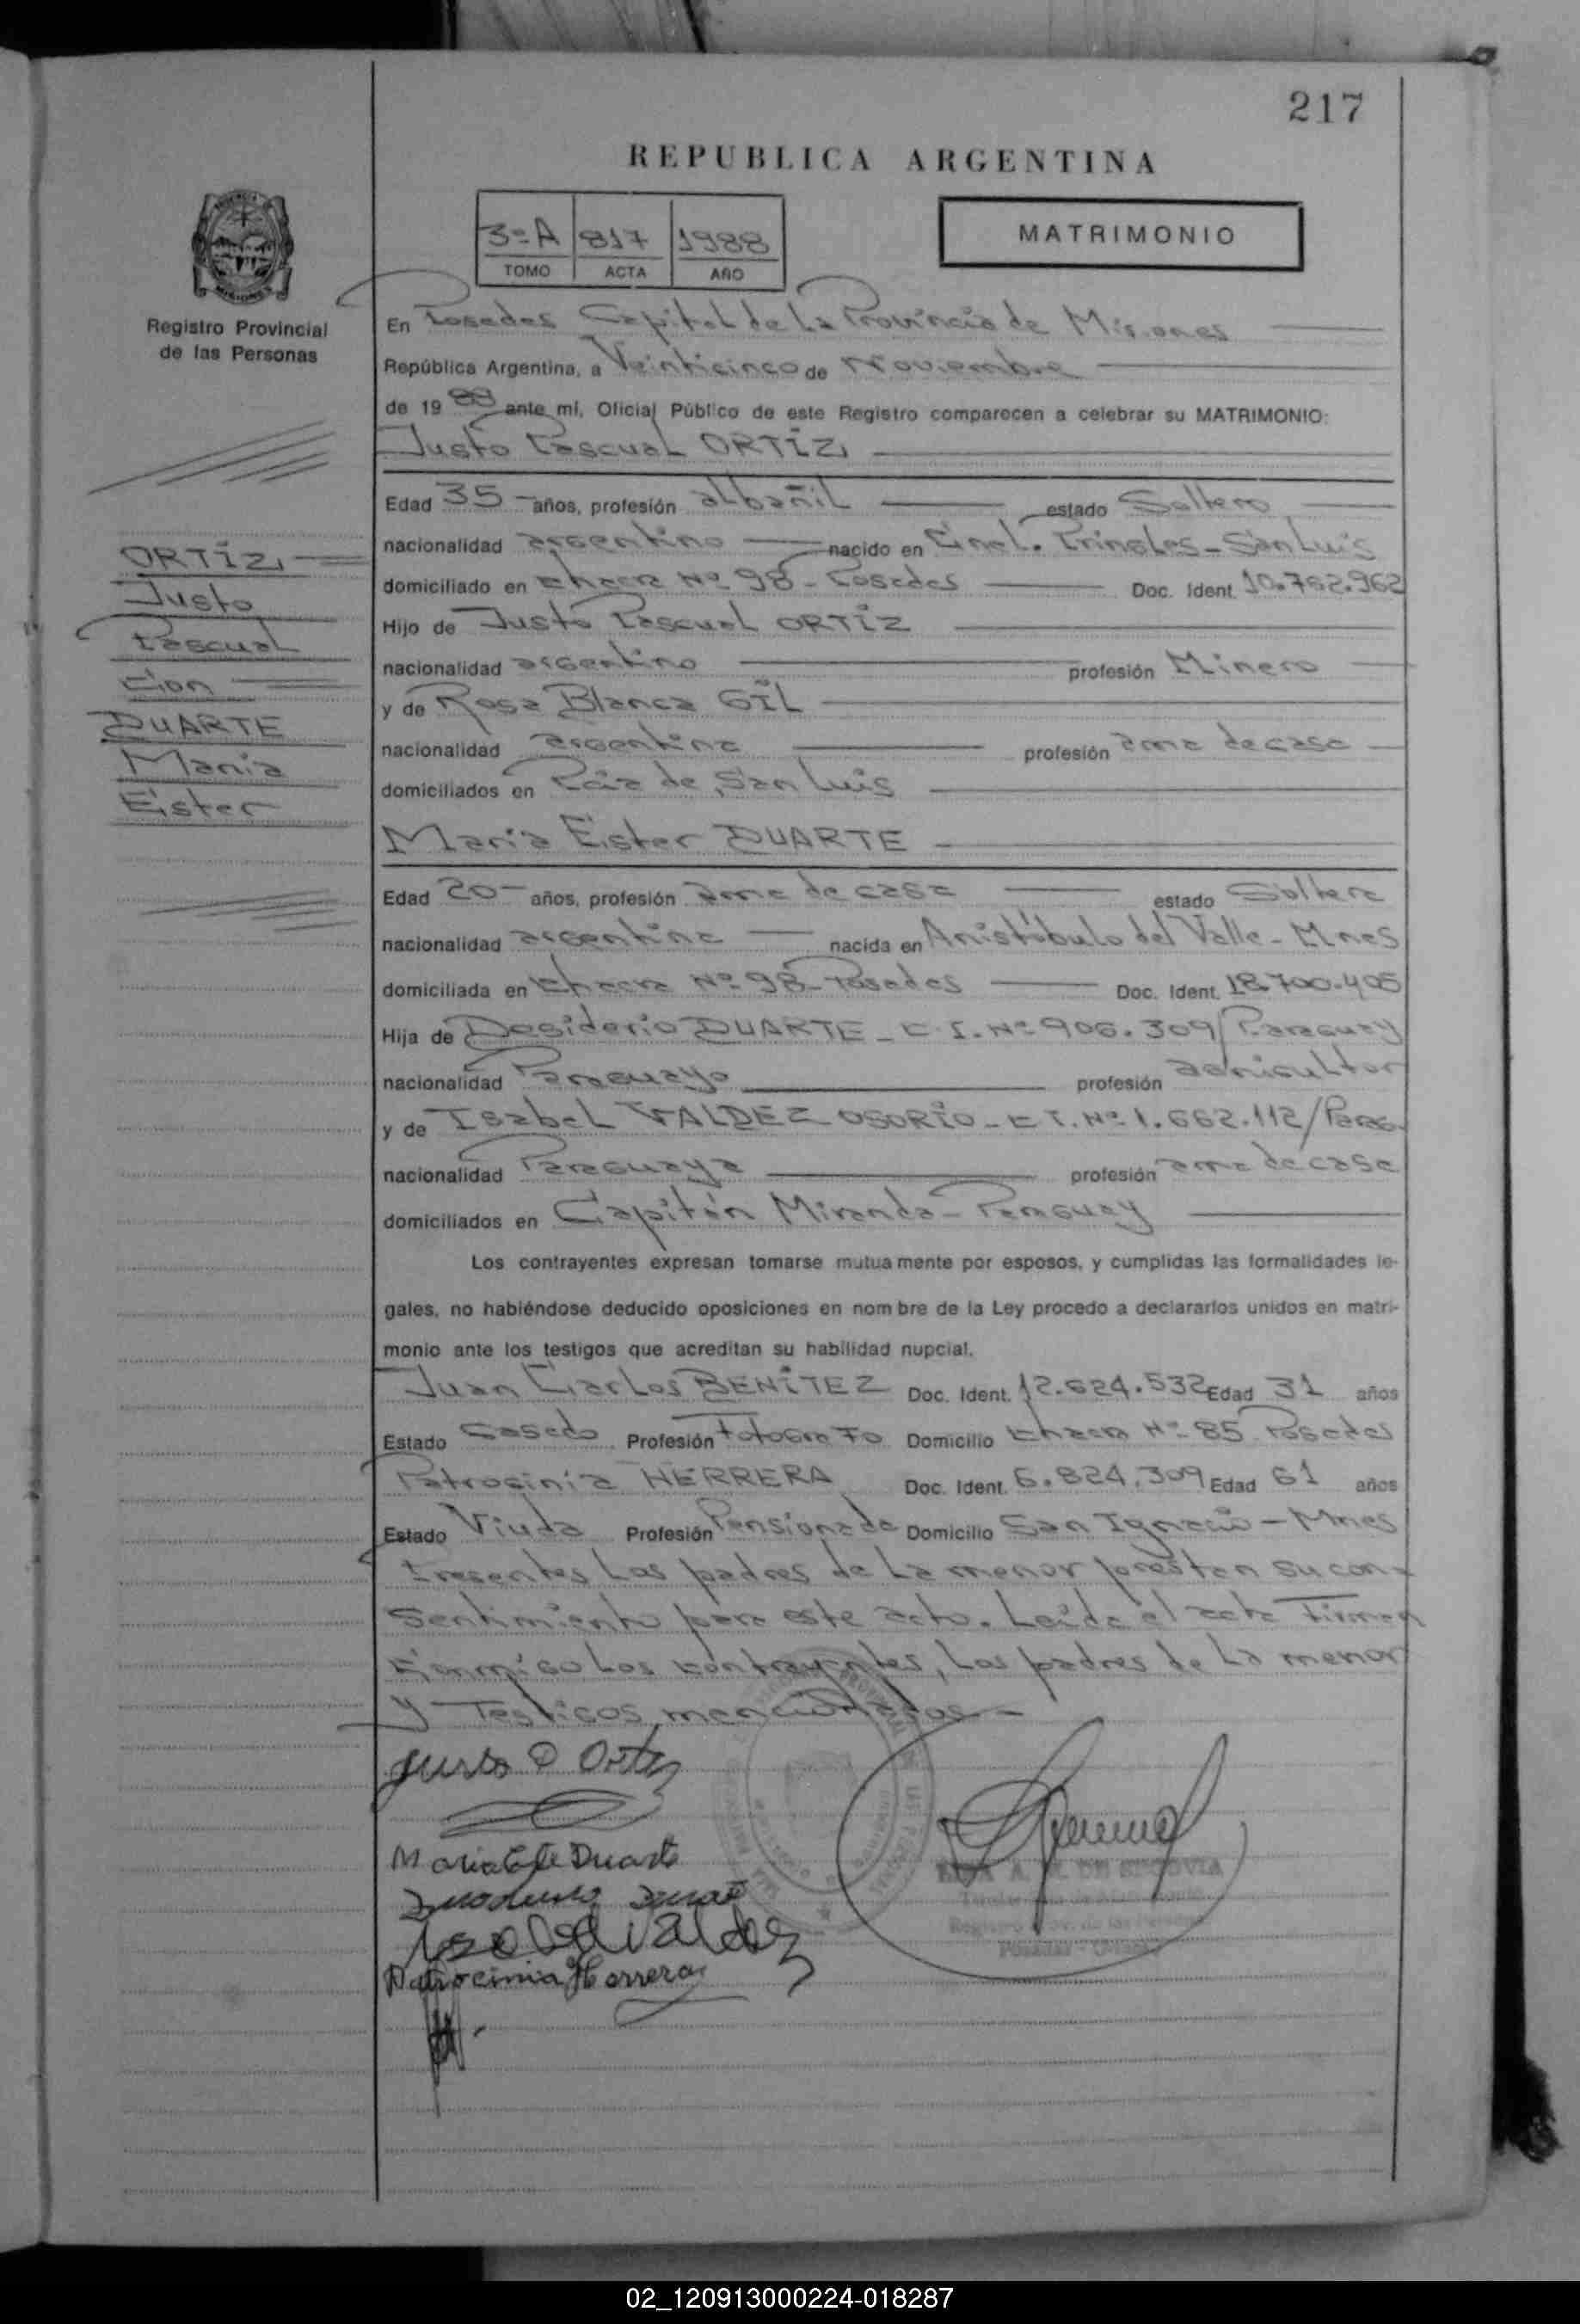 217
REPUBLICA ARGENTINA
3º A 817 1988
TOMO ACTA AÑO
MATRIMONIO
Registro Provincial
de las Personas
En Posadas Capital de La Provincia de Misiones
República Argentina, a Veinticinco de Noviembre
de 19 88 ante mí, Oficial Público de este Registro comparecen a celebrar su MATRIMONIO:
Justo Pascual ORTIZ
Edad 35 años, profesión albañil estado Soltero
nacionalidad argentino nacido en Cnel. Pringles - San Luis
domiciliado en Chacra Nº 98 - Posadas Doc. Ident. 10.762.962
Hijo de Justo Pascual ORTIZ
nacionalidad argentino profesión Minero
y de Rosa Blanca GIL
nacionalidad argentina profesión ama de casa
domiciliados en Pcia de San Luis
María Ester DUARTE
Edad 20 años, profesión ama de casa estado Soltera
nacionalidad argentina nacida en Aristóbulo del Valle - Mnes
domiciliada en Chacra Nº 98 - Posadas Doc. Ident. 18.700.405
Hija de Desiderio DUARTE - C.I. Nº 906.309/Paraguay
nacionalidad Paraguayo profesión agricultor
y de Isabel VALDEZ OSORIO - C.I. Nº 1.662.112/Parag.
nacionalidad Paraguaya profesión ama de casa
domiciliados en Capitán Miranda - Paraguay
Los contrayentes expresan tomarse mutua mente por esposos, y cumplidas las formalidades le-
gales, no habiéndose deducido oposiciones en nom bre de la Ley procedo a declararlos unidos en matri-
monio ante los testigos que acreditan su habilidad nupcial.
Juan Carlos BENITEZ Doc. Ident. 12.624.532 Edad 31 años
Estado Casado Profesión Fotografo Domicilio Chacra Nº 85 Posadas
Patrocinia HERRERA Doc. Ident. 6.824.309 Edad 61 años
Estado Viuda Profesión Pensionada Domicilio San Ignacio - Mnes
Presentes Los padres de La menor prestan su con-
sentimiento para este acto. Leída el acta firman
Conmigo Los contrayentes, Los padres de La menor
y Testigos mencionados -
ORTIZ
Justo
Pascual
con
DUARTE
María
Ester
Justo P Ortiz
Maria Este Duarte
Duarte
Isabel Valdez
Patrocinia Herrera
A. DE SEGOVIA
02_120913000224-018287